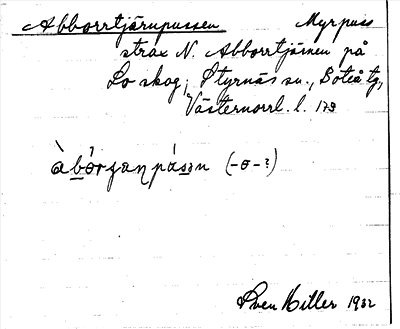 Abborrtjärnpussen Myrpuss
strax N. Abborrtjärnen på
Lo skog, Styrnäs sn., Boteå tg,
Västernorrl. l. 179
àbórʒanpásən (-o-?)
Sven Hiller 1932